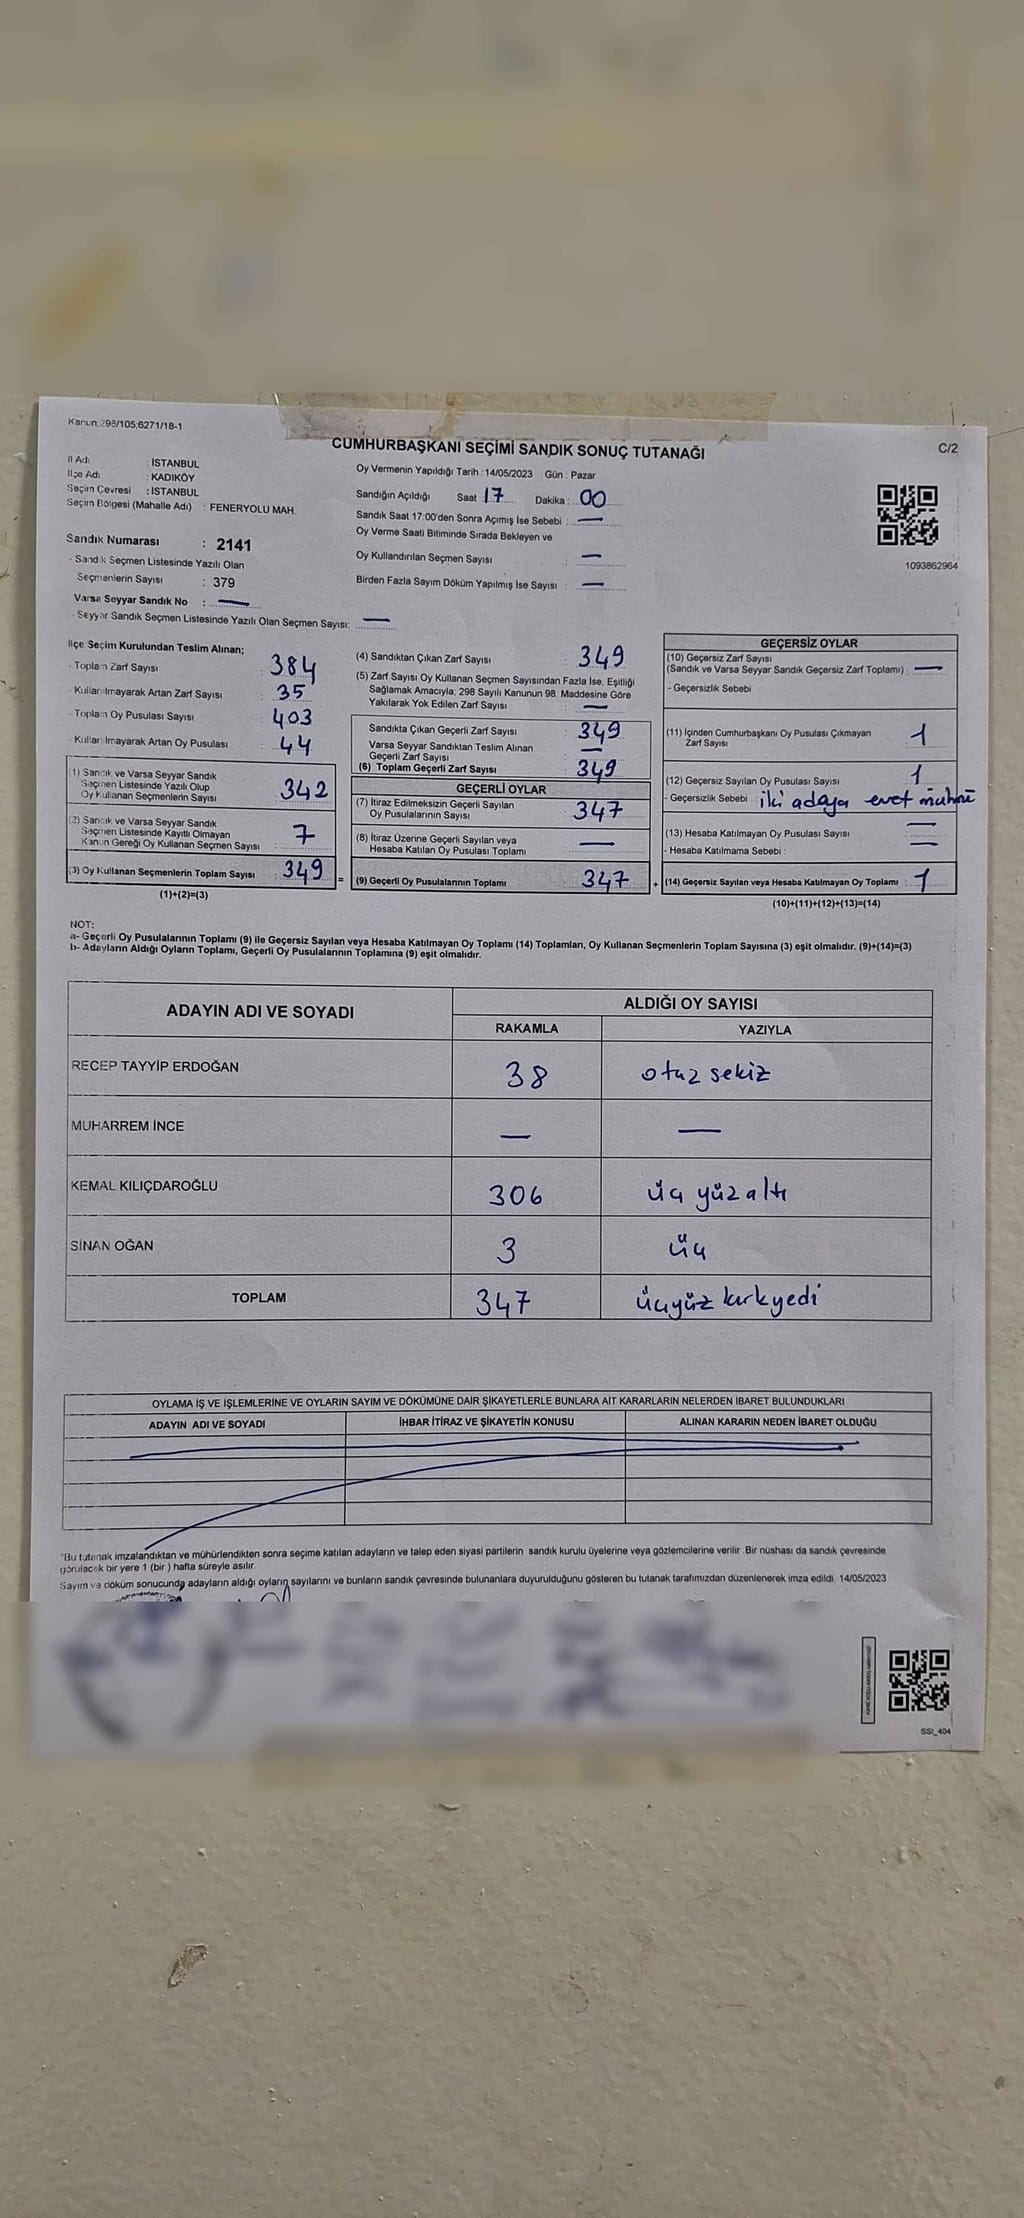 Kanun,298/105,6271/18-1
CUMHURBAŞKANI SEÇİMİ SANDIK SONUÇ TUTANAĞI
C/2
İl Adı : İSTANBUL
İlçe Adı : KADIKÖY
Seçim Çevresi : İSTANBUL
Seçim Bölgesi (Mahalle Adı) : FENERYOLU MAH.
Sandık Numarası : 2141
- Sandık Seçmen Listesinde Yazılı Olan
Seçmenlerin Sayısı : 379
Varsa Seyyar Sandık No : —
- Seyyar Sandık Seçmen Listesinde Yazılı Olan Seçmen Sayısı: —
Oy Vermenin Yapıldığı Tarih :14/05/2023 Gün : Pazar
Sandığın Açıldığı Saat 17 Dakika : 00
Sandık Saat 17:00'den Sonra Açımış İse Sebebi : —
Oy Verme Saati Bitiminde Sırada Bekleyen ve
Oy Kullandırılan Seçmen Sayısı : —
Birden Fazla Sayım Döküm Yapılmış İse Sayısı : —
1093862964
İlçe Seçim Kurulundan Teslim Alınan;
- Toplam Zarf Sayısı : 384
- Kullanılmayarak Artan Zarf Sayısı : 35
- Toplam Oy Pusulası Sayısı : 403
- Kullanılmayarak Artan Oy Pusulası : 44
(1) Sandık ve Varsa Seyyar Sandık
Seçmen Listesinde Yazılı Olup
Oy Kullanan Seçmenlerin Sayısı : 342
(2) Sandık ve Varsa Seyyar Sandık
Seçmen Listesinde Kayıtlı Olmayan
Kanun Gereği Oy Kullanan Seçmen Sayısı : 7
(3) Oy Kullanan Seçmenlerin Toplam Sayısı : 349
(1)+(2)=(3)
(4) Sandıktan Çıkan Zarf Sayısı : 349
(5) Zarf Sayısı Oy Kullanan Seçmen Sayısından Fazla İse, Eşitliği
Sağlamak Amacıyla; 298 Sayılı Kanunun 98. Maddesine Göre
Yakılarak Yok Edilen Zarf Sayısı : —
Sandıkta Çıkan Geçerli Zarf Sayısı : 349
Varsa Seyyar Sandıktan Teslim Alınan
Geçerli Zarf Sayısı : —
(6) Toplam Geçerli Zarf Sayısı : 349
GEÇERLİ OYLAR
(7) İtiraz Edilmeksizin Geçerli Sayılan
Oy Pusulalarının Sayısı : 347
(8) İtiraz Üzerine Geçerli Sayılan veya
Hesaba Katılan Oy Pusulası Toplamı : —
= (9) Geçerli Oy Pusulalarının Toplamı : 347 +
GEÇERSİZ OYLAR
(10) Geçersiz Zarf Sayısı
(Sandık ve Varsa Seyyar Sandık Geçersiz Zarf Toplamı) : —
- Geçersizlik Sebebi :
(11) İçinden Cumhurbaşkanı Oy Pusulası Çıkmayan
Zarf Sayısı : 1
(12) Geçersiz Sayılan Oy Pusulası Sayısı : 1
- Geçersizlik Sebebi : iki adaya evet mührü
(13) Hesaba Katılmayan Oy Pusulası Sayısı : —
- Hesaba Katılmama Sebebi : —
(14) Geçersiz Sayılan veya Hesaba Katılmayan Oy Toplamı : 1
(10)+(11)+(12)+(13)=(14)
NOT:
a- Geçerli Oy Pusulalarının Toplamı (9) ile Geçersiz Sayılan veya Hesaba Katılmayan Oy Toplamı (14) Toplamları, Oy Kullanan Seçmenlerin Toplam Sayısına (3) eşit olmalıdır. (9)+(14)=(3)
b- Adayların Aldığı Oyların Toplamı, Geçerli Oy Pusulalarının Toplamına (9) eşit olmalıdır.
ADAYIN ADI VE SOYADI
ALDIĞI OY SAYISI
RAKAMLA YAZIYLA
RECEP TAYYİP ERDOĞAN 38 otuz sekiz
MUHARREM İNCE — —
KEMAL KILIÇDAROĞLU 306 üç yüz altı
SİNAN OĞAN 3 üç
TOPLAM 347 üçyüz kırkyedi
OYLAMA İŞ VE İŞLEMLERİNE VE OYLARIN SAYIM VE DÖKÜMÜNE DAİR ŞİKAYETLERLE BUNLARA AİT KARARLARIN NELERDEN İBARET BULUNDUKLARI
ADAYIN ADI VE SOYADI İHBAR İTİRAZ VE ŞİKAYETİN KONUSU ALINAN KARARIN NEDEN İBARET OLDUĞU
*Bu tutanak imzalandıktan ve mühürlendikten sonra seçime katılan adayların ve talep eden siyasi partilerin sandık kurulu üyelerine veya gözlemcilerine verilir. Bir nüshası da sandık çevresinde
görülecek bir yere 1 (bir ) hafta süreyle asılır.
Sayım ve döküm sonucunda adayların aldığı oyların sayılarını ve bunların sandık çevresinde bulunanlara duyurulduğunu gösteren bu tutanak tarafımızdan düzenlenerek imza edildi. 14/05/2023
SSI_404